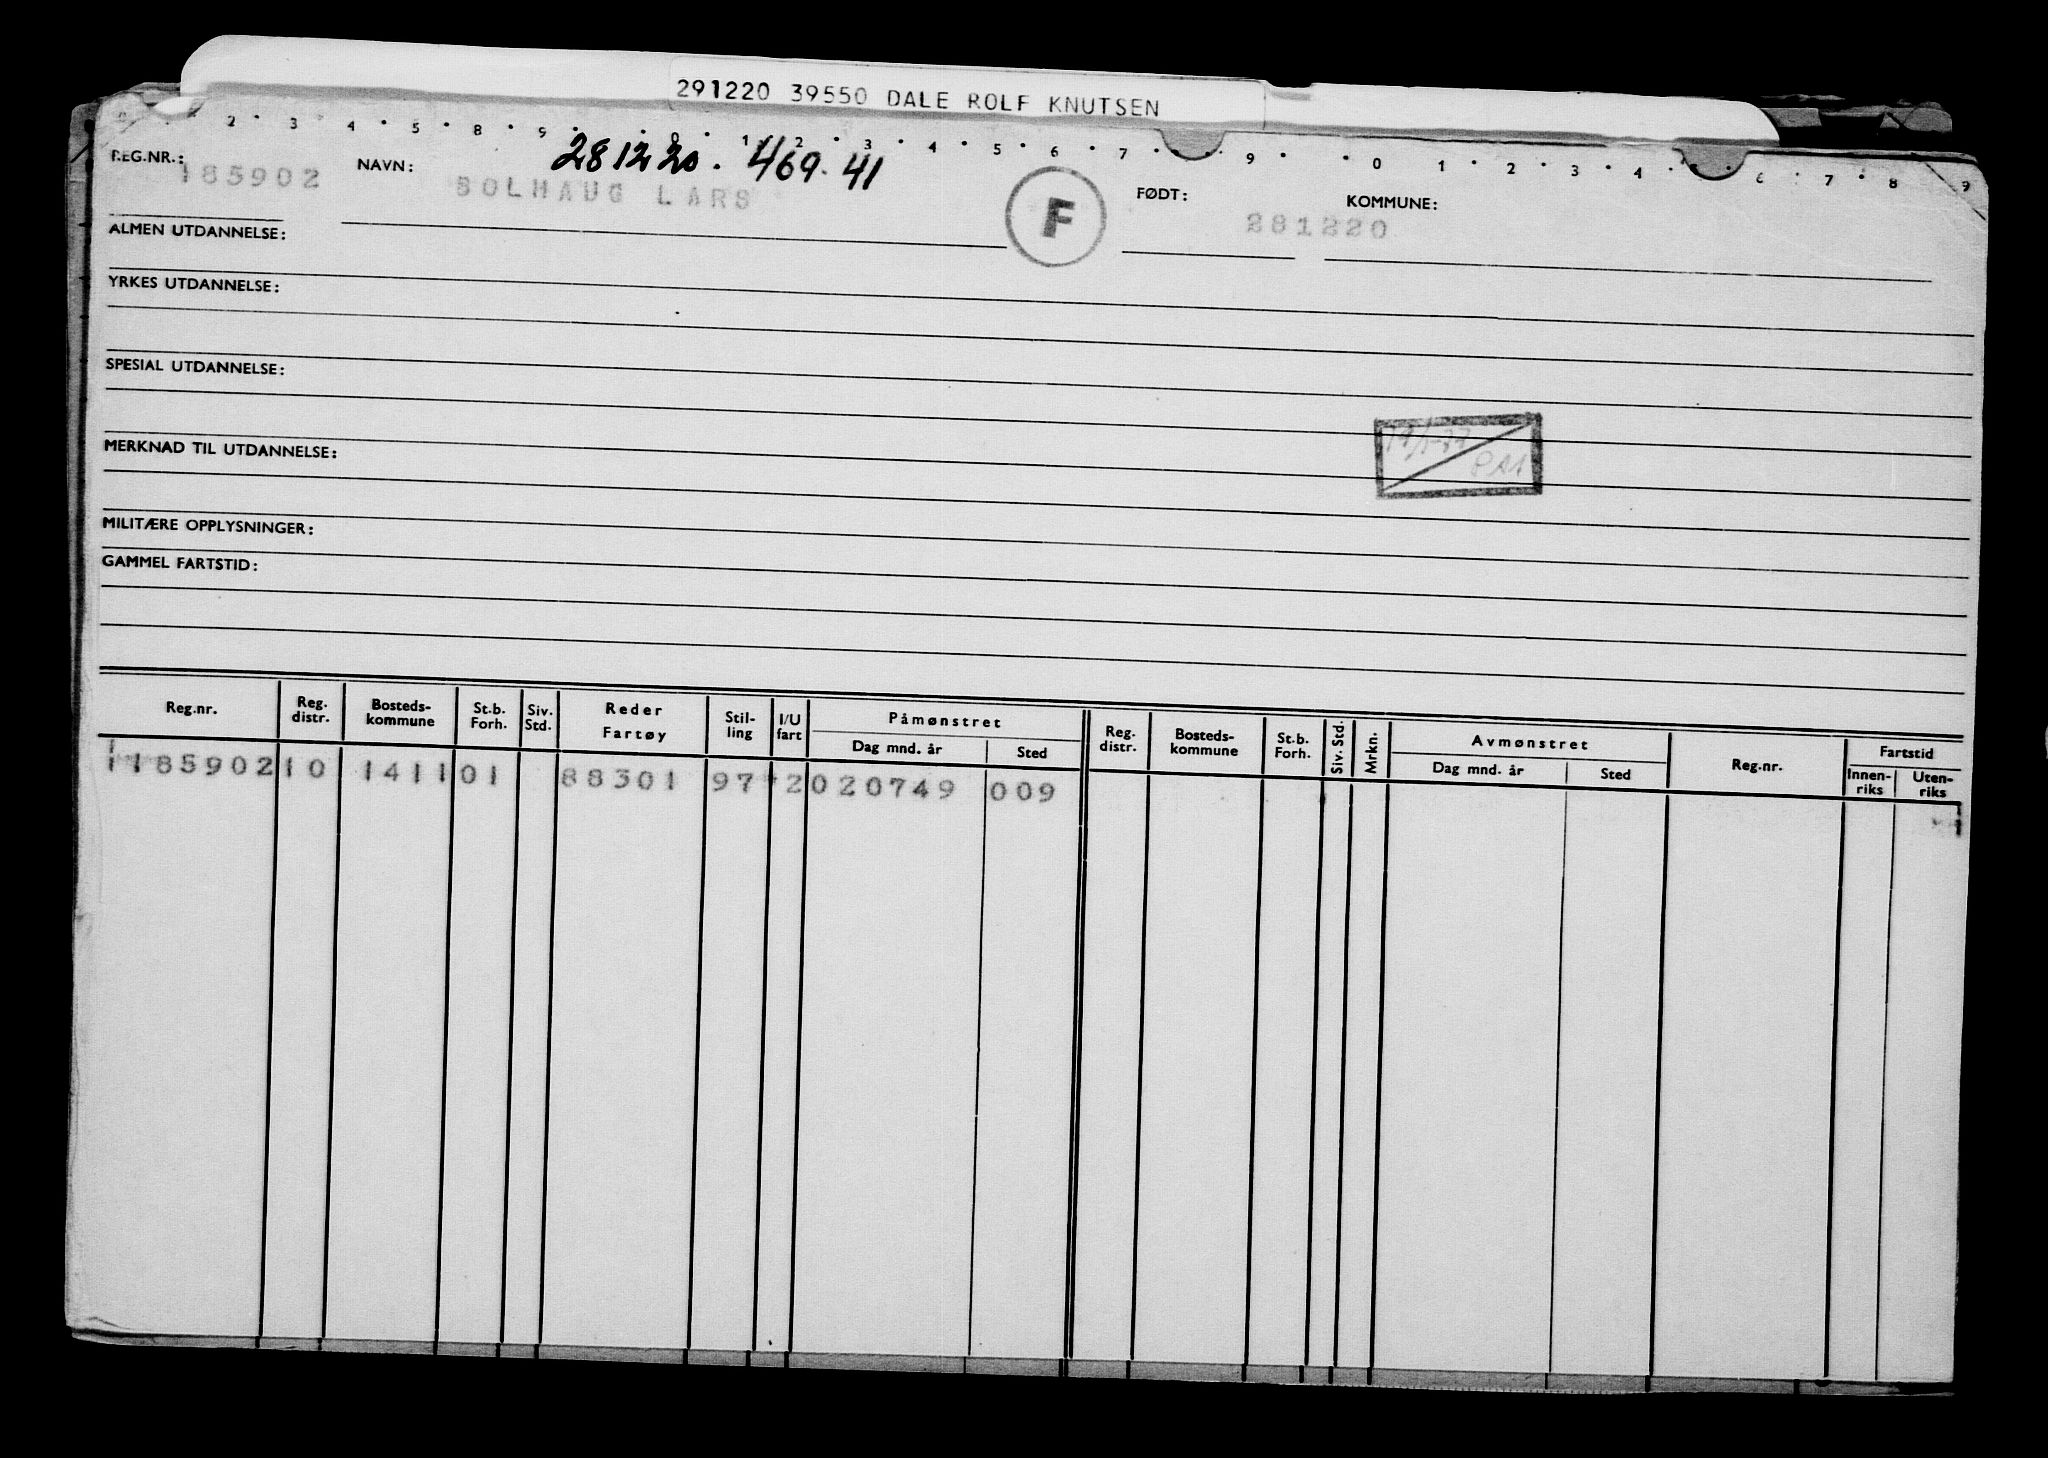 291220 39550 DALE ROLF KNUTSEN
2 3 4 5 8 9 0 1 2 3 4 5 6 7 9 0 1 2 3 4 6 7 8 9
281220. 469.41
REG.NR.: 185902 NAVN: SOLHAUG LARS F FØDT: 281220 KOMMUNE:
ALMEN UTDANNELSE:
YRKES UTDANNELSE:
SPESIAL UTDANNELSE:
MERKNAD TIL UTDANNELSE:
MILITÆRE OPPLYSNINGER:
GAMMEL FARTSTID:
Reg.nr. Reg. distr. Bosteds- kommune St.b. Forh. Siv. Std. Reder Fartøy Stil- ling I/U fart Påmønstret Dag mnd. år Sted Reg. distr. Bosteds- kommune St.b. Forh. Siv. Std. Mrkn. Avmønstret Dag mnd. år Sted Reg.nr. Fartstid Innen- riks Uten- riks
185902 10 1411 01 88301 97 2 020749 009